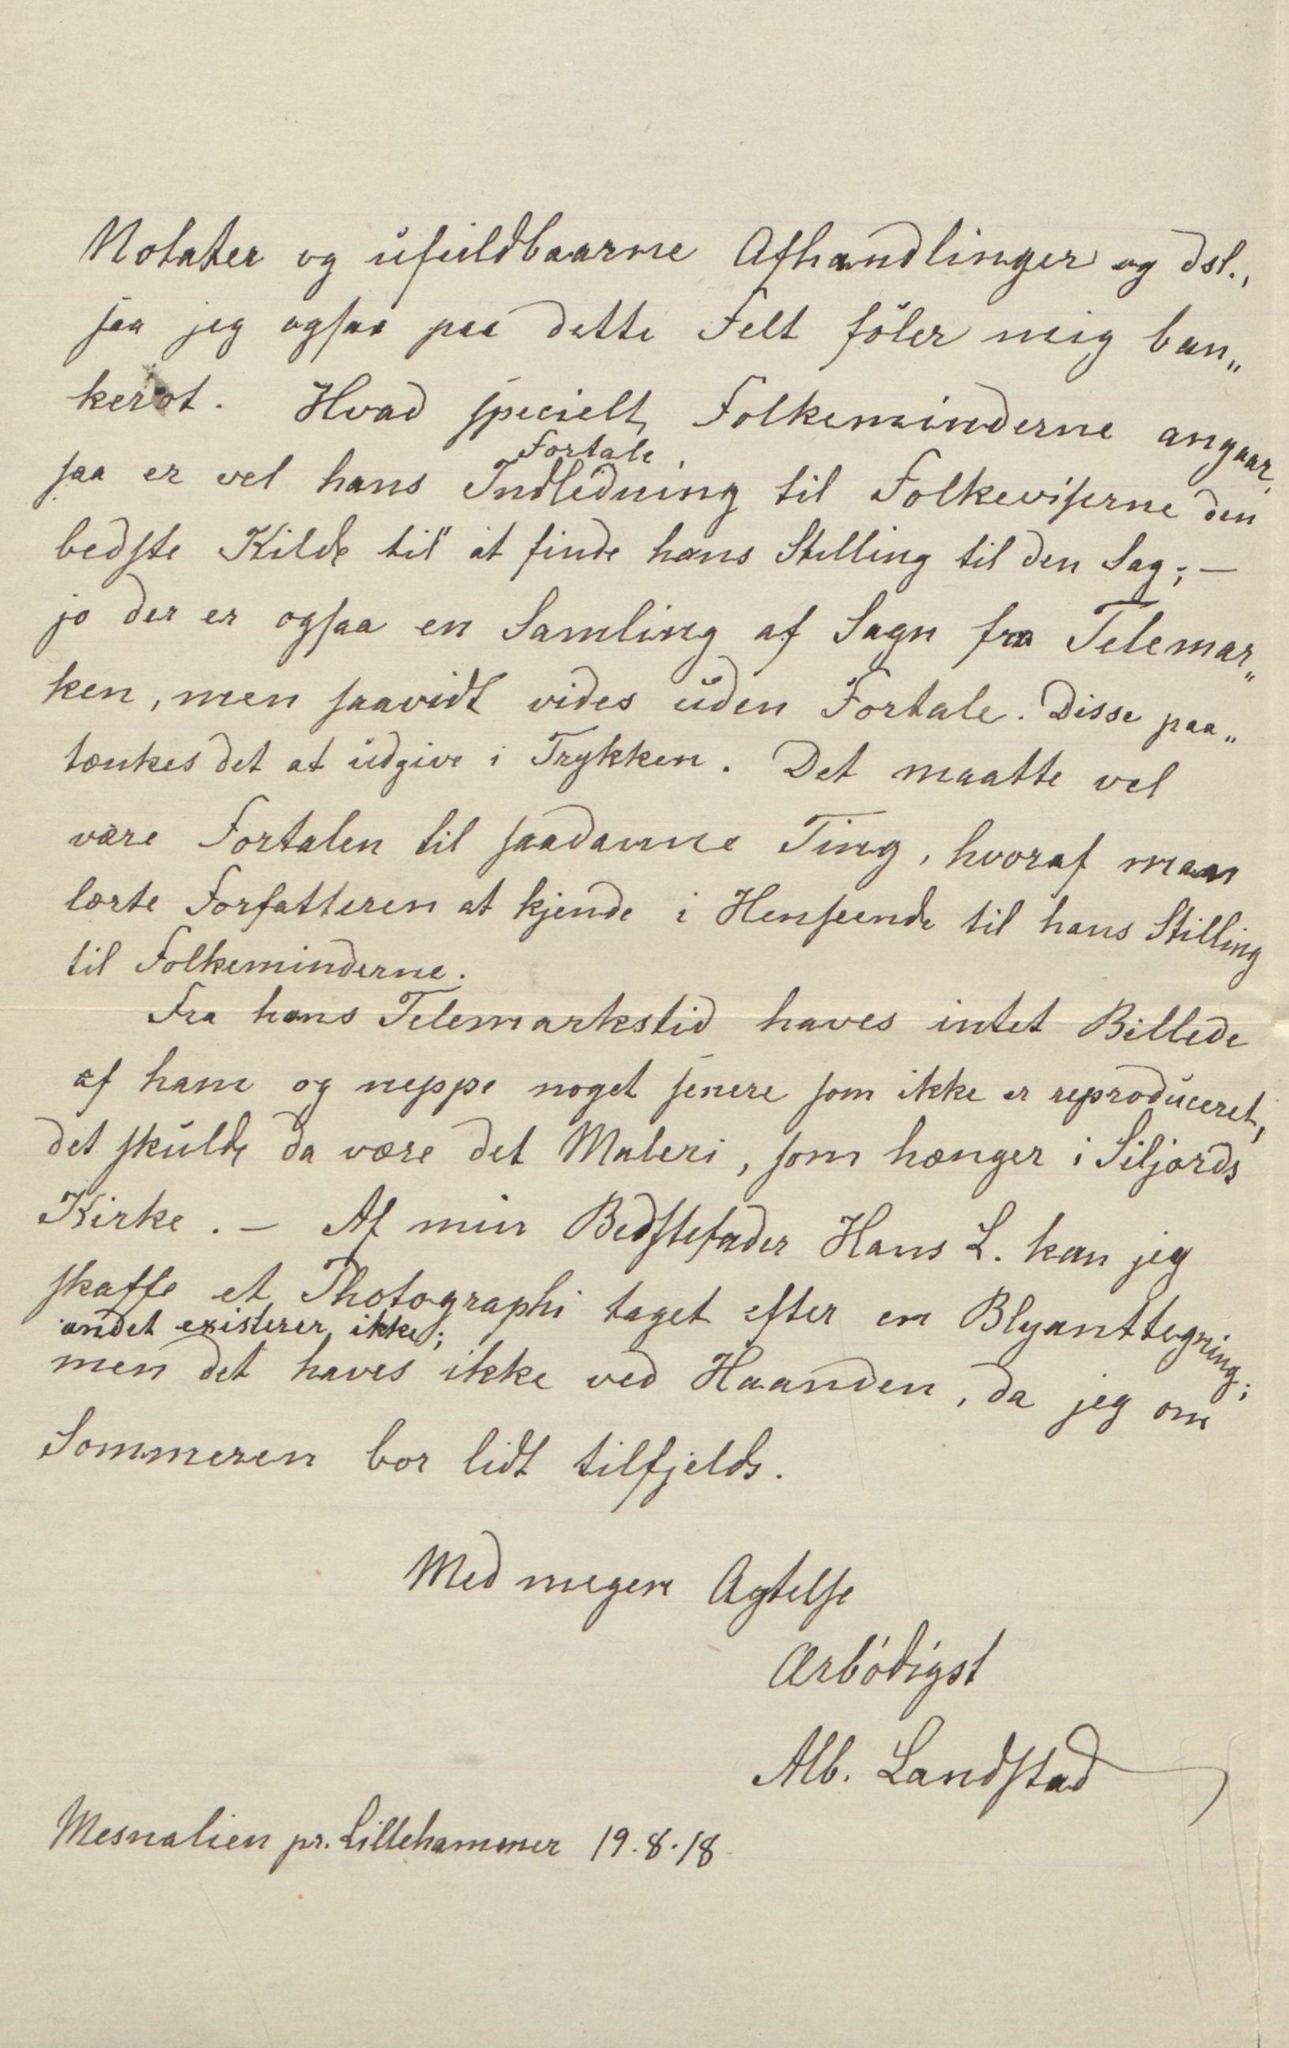 Notater og ufuldbaarne Afhandlinger og dsl.,
saa jeg ogsaa paa dette Felt föler mig ban„
kerot. Hvad specielt Folkeminderne angaar,
Fortale
saa er vel hans Indledning til Folkeviserne den
bedste Kilde til at finde hans Stilling til den Sag; –
jo der er ogsaa en Samling af Sagn fra Telemar„
ken, men saavidt vides uden Fortale. Disse paa„
tænkes det at udgive i Trykken. Det maatte vel
være Fortalen til saadanne Ting, hvoraf man
lærte Forfatteren at kjende i Henseende til hans Stilling
til Folkeminderne.
Fra hans Telemarkstid haves intet Billede
af ham og neppe noget senere som ikke er reproduceret,
det skulde da være det Maleri, som hænger i Siljords
Kirke. – Af min Bedstefader Hans L. kan jeg
skaffe et Photographi taget efter en Blyanttegning;
andet existerer ikke;
men det haves ikke ved Haanden, da jeg om
Sommeren bor lidt tilfjelds.
Med megen Agtelse
Ærbödigst
Alb. Landstad
Mesnalien pr. Lillehammer 19.8.18